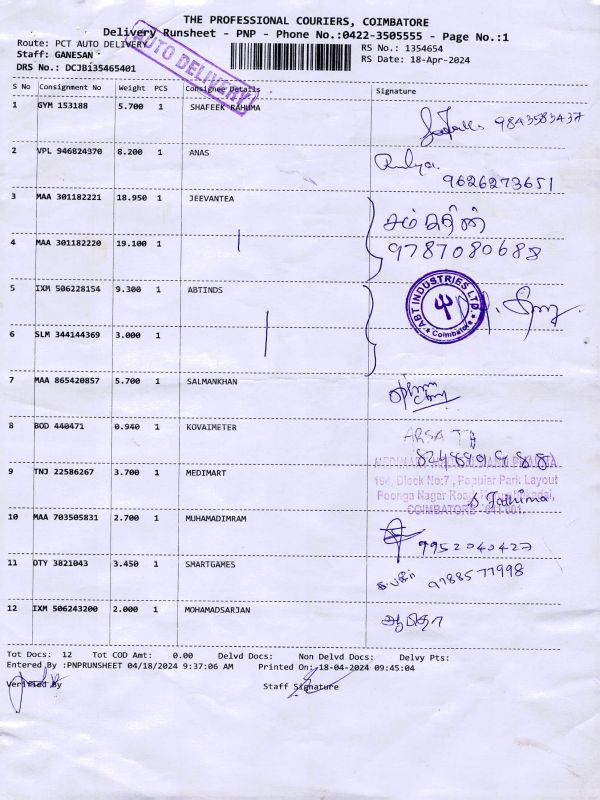 THE PROFESSIONAL COURIERS, COIMBATORE
Delivery Runsheet - PNP - Phone No.:0422-3505555 - Page No.:1
Route: PCT AUTO DELIVERY
RS No.: 1354654
Staff: GANESAN
RS Date: 18-Apr-2024
DRS No.: DCJBi35465401
AUTO DELIVERY
S No Consignment No Weight PCS Consignee Details Signature
1 GYM 153188 5.700 1 SHAFEEK RAHUMA 9843583437
2 VPL 946824370 8.200 1 ANAS 9626273651
3 MAA 301182221 18.950 1 JEEVANTEA
4 MAA 301182220 19.100 1 9787080688
5 IXM 506228154 9.300 1 ABTINDS
ABT INDUSTRIES LTD. * Coimbatore *
6 SLM 344144369 3.000 1
7 MAA 865420857 5.700 1 SALMANKHAN
8 BOD 440471 0.940 1 KOVAIMETER ARSATH
9 TNJ 22586267 3.700 1 MEDIMART
194, Block No:7, Popular Park Layout
Poonga Nagar Road,
S. Fathima
COIMBATORE
10 MAA 703505831 2.700 1 MUHAMADIMRAM 9952040427
11 DTY 3821043 3.450 1 SMARTGAMES 9788577998
12 IXM 506243200 2.000 1 MOHAMADSARJAN
Tot Docs: 12 Tot COD Amt: 0.00 Delvd Docs: Non Delvd Docs: Delvy Pts:
Entered By :PNPRUNSHEET 04/18/2024 9:37:06 AM Printed On:-18-04-2024 09:45:04
Verified By Staff Signature